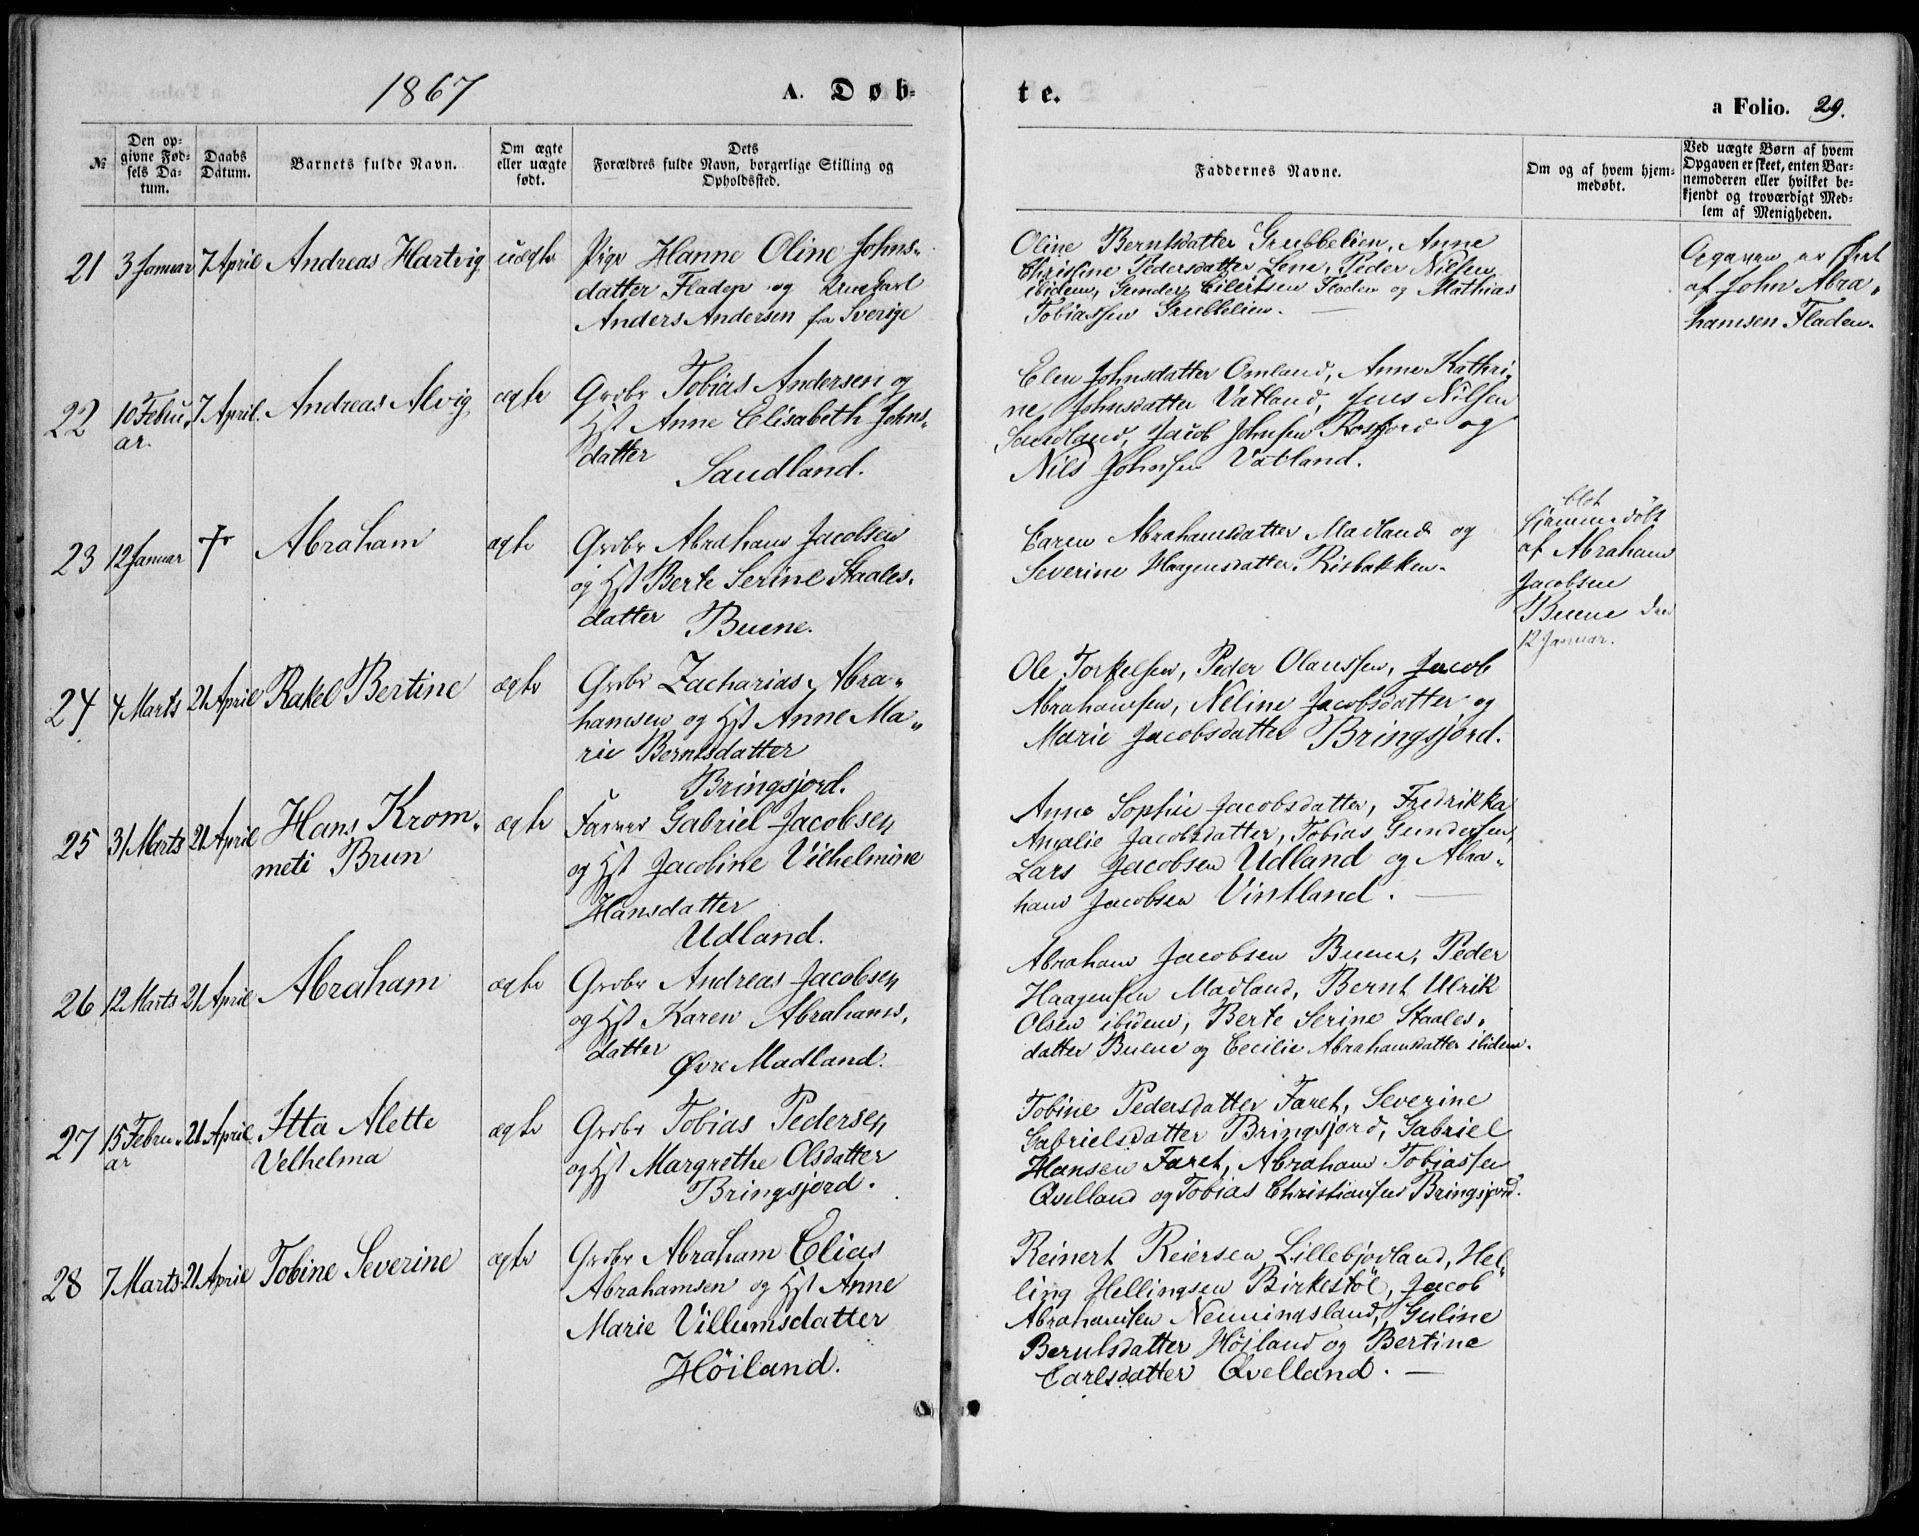 1867
A. Døb-
te.
a Folio. 29.
№
Den op-
givne Fød-
sels Da-
tum.
Daabs
Datum.
Barnets fulde Navn.
Om ægte
eller uægte
født.
Dets
Forældres fulde Navn, borgerlige Stilling og
Opholdssted.
Faddernes Navne.
Om og af hvem hjem-
medøbt.
Ved uægte Børn af hvem
Opgaven er skeet, enten Bar-
nemoderen eller hvilket be-
kjendt og troværdigt Med-
lem af Menigheden.
21
3 Januar
7 April
Andreas Hartvig
uægte
Pige Hanne Oline Johns-
datter Fladen og
Anders Andersen fra Sverige
Oline Berntsdatter Grubbelien, Anne
Christine Pedersdatter Lene, Peder Nilsen
ibidem, Gunder Eilertsen Fladen og Mathias
Tobiassen Grubbelien.
Opgaven er
af John Abra-
hamsen Fladen.
22
10 Febru-
ar.
7 April.
Andreas Alvig
ægte
Grdbr Tobias Andersen og
Hst Anne Elisabeth Johns-
datter
Saudland.
Elen Johnsdatter Omland, Anne Kathri-
ne Johnsdatter Vatland, Jens Nilsen
Saudland, Jacob Johnsen Rosfjord og
Nils Johnsen Vatland.
23
12 Januar
†
Abraham
ægte
Grdbr Abraham Jacobsen
og Hst Berte Serine Staales-
datter
Buene.
Caren Abrahamsdatter Madland og
Severine Haagensdatter Risbakken.
blot
hjemmedøbt
af Abraham
Jacobsen
Buene den
12 Januar.
24
4 Marts
21 April
Rakel Bertine
ægte
Grdbr Zacharias Abra-
hamsen og Hst Anne Ma-
rie Berntsdatter
Bringsjord.
Ole Torkelsen, Peder Olaussen, Jacob
Abrahamsen, Neline Jacobsdatter og
Marie Jacobsdatter Bringsjord.
25
31 Marts
21 April
Hans Krom-
meti Brun
ægte
Farver Gabriel Jacobsen
og Hst Jacobine Vilhelmine
Hansdatter
Udland.
Anne Sophie Jacobsdatter, Fredrikka
Amalie Jacobsdatter, Tobias Gundersen,
Lars Jacobsen Udland og Abra-
ham Jacobsen Vintland.
26
12 Marts
21 April
Abraham
ægte
Grdbr Andreas Jacobsen
og Hst Karen Abrahams-
datter
Øvre Madland.
Abraham Jacobsen Buene, Peder
Haagensen Madland, Bernt Ulrik
Olsen ibidem, Berte Serine Staales-
datter Buene og Cecilie Abrahamsdatter ibidem.
27
15 Febru-
ar
21 April
Itta Alette
Velhelma
ægte
Grdbr Tobias Pedersen
og Hst Margrethe Olsdatter
Bringsjord.
Tobine Pedersdatter Faret, Severine
Gabrielsdatter Bringsjord, Gabriel
Hansen Faret, Abraham Tobiassen
Qvelland og Tobias Christiansen Bringsjord.
28
7 Marts
21 April
Tobine Severine
ægte
Grdbr Abraham Elias
Abrahamsen og Hst Anne
Marie Villumsdatter
Höiland.
Reinert Reiersen Lillebjorland, Hel-
ling Hellingsen Birkestöl, Jacob
Abrahamsen Nenningsland, Guline
Berntsdatter Höiland og Bertine
Carlsdatter Qvelland.